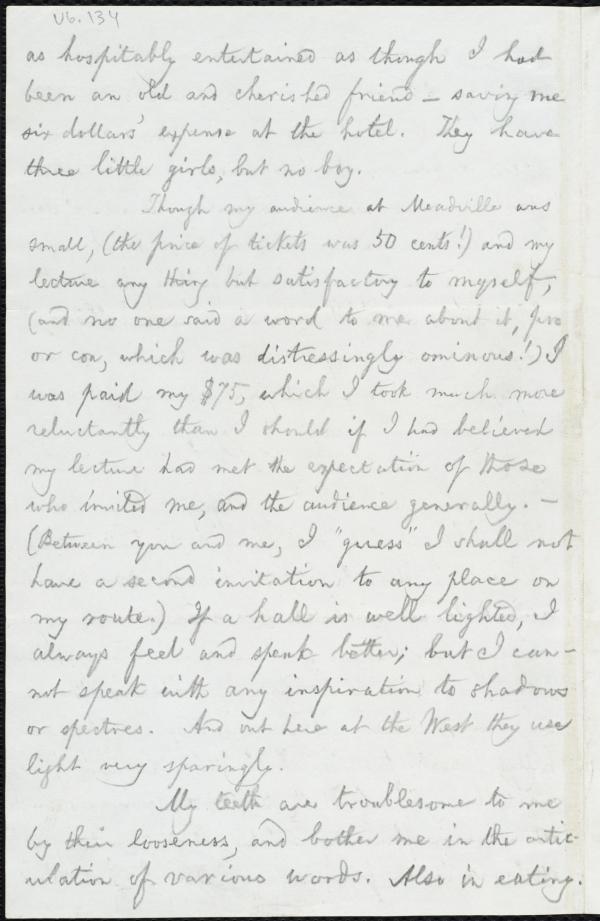 V6.134
as hospitably entertained as though I had
been an old and cherished friend — saving me
six dollars' expense at the hotel. They have
three little girls, but no boy.
Though my audience at Meadville was
small, (the price of tickets was 50 cents!) and my
lecture any thing but satisfactory to myself,
(and no one said a word to me about it, pro
or con, which was distressingly ominous!) I
was paid my $75, which I took much more
reluctantly than I should if I had believed
my lecture had met the expectation of those
who invited me, and the audience generally. —
(Between you and me, I "guess" I shall not
have a second invitation to any place on
my route.) If a hall is well lighted, I
always feel and speak better; but I can-
not speak with any inspiration to shadows
or spectres. And out here at the West they use
light very sparingly.
My teeth are troublesome to me
by their looseness, and bother me in the artic-
ulation of various words. Also in eating.